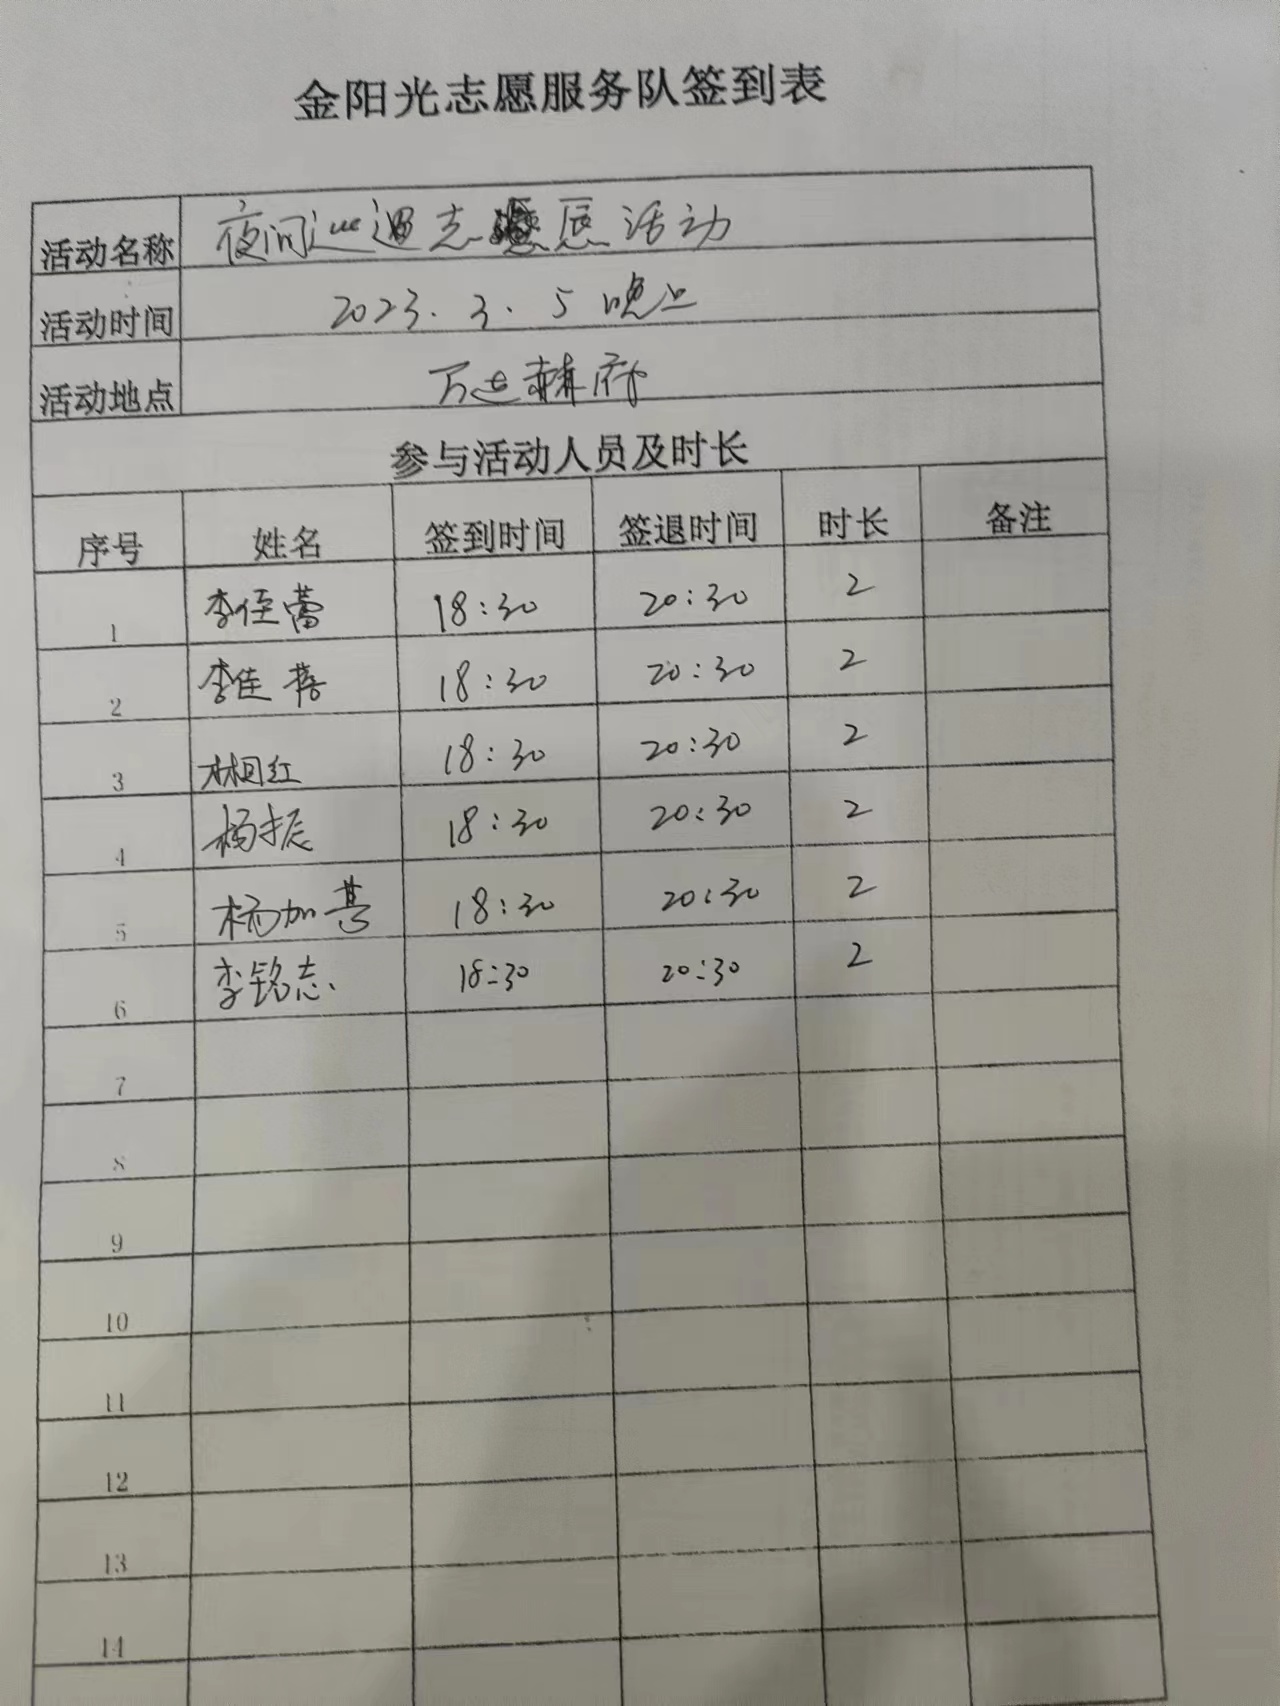 金阳光志愿服务队签到表
活动名称 夜间巡逻志愿活动
活动时间 2023.3.5晚上
活动地点 万达 府
参与活动人员及时长
序号 姓名 签到时间 签退时间 时长 备注
1 李佳蕾 18:30 20:30 2
2 李佳 18:30 20:30 2
3 林相红 18:30 20:30 2
4 杨振 18:30 20:30 2
5 杨加 18:30 20:30 2
6 李铭志 18:30 20:30 2
7
8
9
10
11
12
13
14